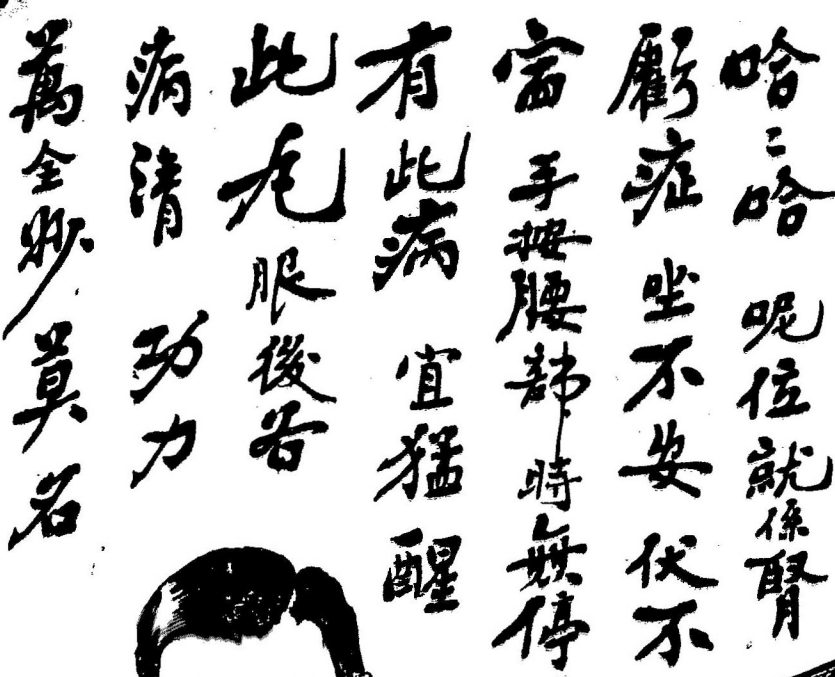 哈二哈 呢位就係腎
虧症 坐不安 伏不
甯 手按腰部 時時無停
有此病 宜猛醒
此丸服後各
病清 功力
萬全妙 莫名